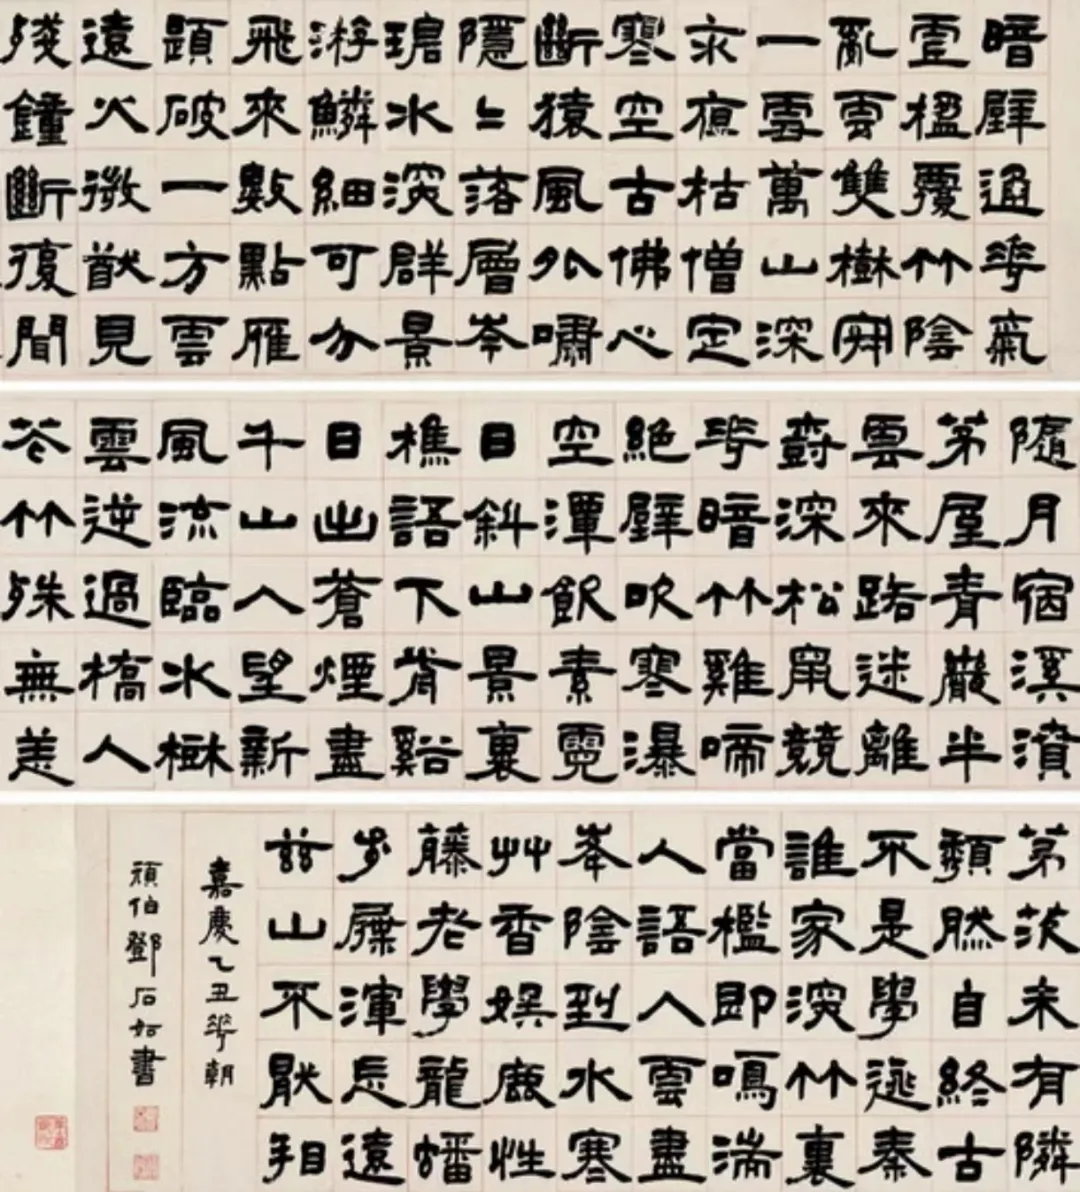 暗壁通華氣
虛楹覆竹陰
亂雲雙樹
一雪萬山深
枯僧定
寒空古佛心
斷猿風外嘯
隱〻落層岑
水深群景
游鱗細可分
飛來數點雁
題破一方雲
遠火微猷見
殘鐘斷復聞
隨月宿溪濆
茅屋青巖半
雲來路迷離
尌深松鼠競
華暗竹雞啼
絕壁吹寒瀑
空潭飲素霓
日斜山景裏
樵語下前谿
日出蒼煙盡
千山入望新
風流臨水樹
雲逆過橋人
花竹殊無恙
茅茨未有隣
頹然自終古
不是學逃秦
誰家深竹裏
當檻即鳴湍
人語入雲盡
峯陰到水寒
艸香娛鹿性
藤老學龍蟠
步屧渾忘遠
茲山不厭看
嘉慶乙丑華朝
頑伯鄧石如書